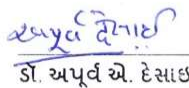 અપૂર્વ દેસાઈ
ડૉ. અપૂર્વ એ. દેસાઇ